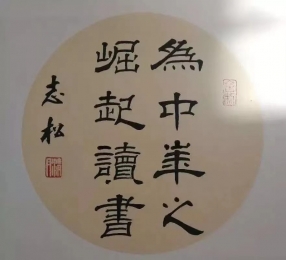 為中華之
崛起讀書
志松